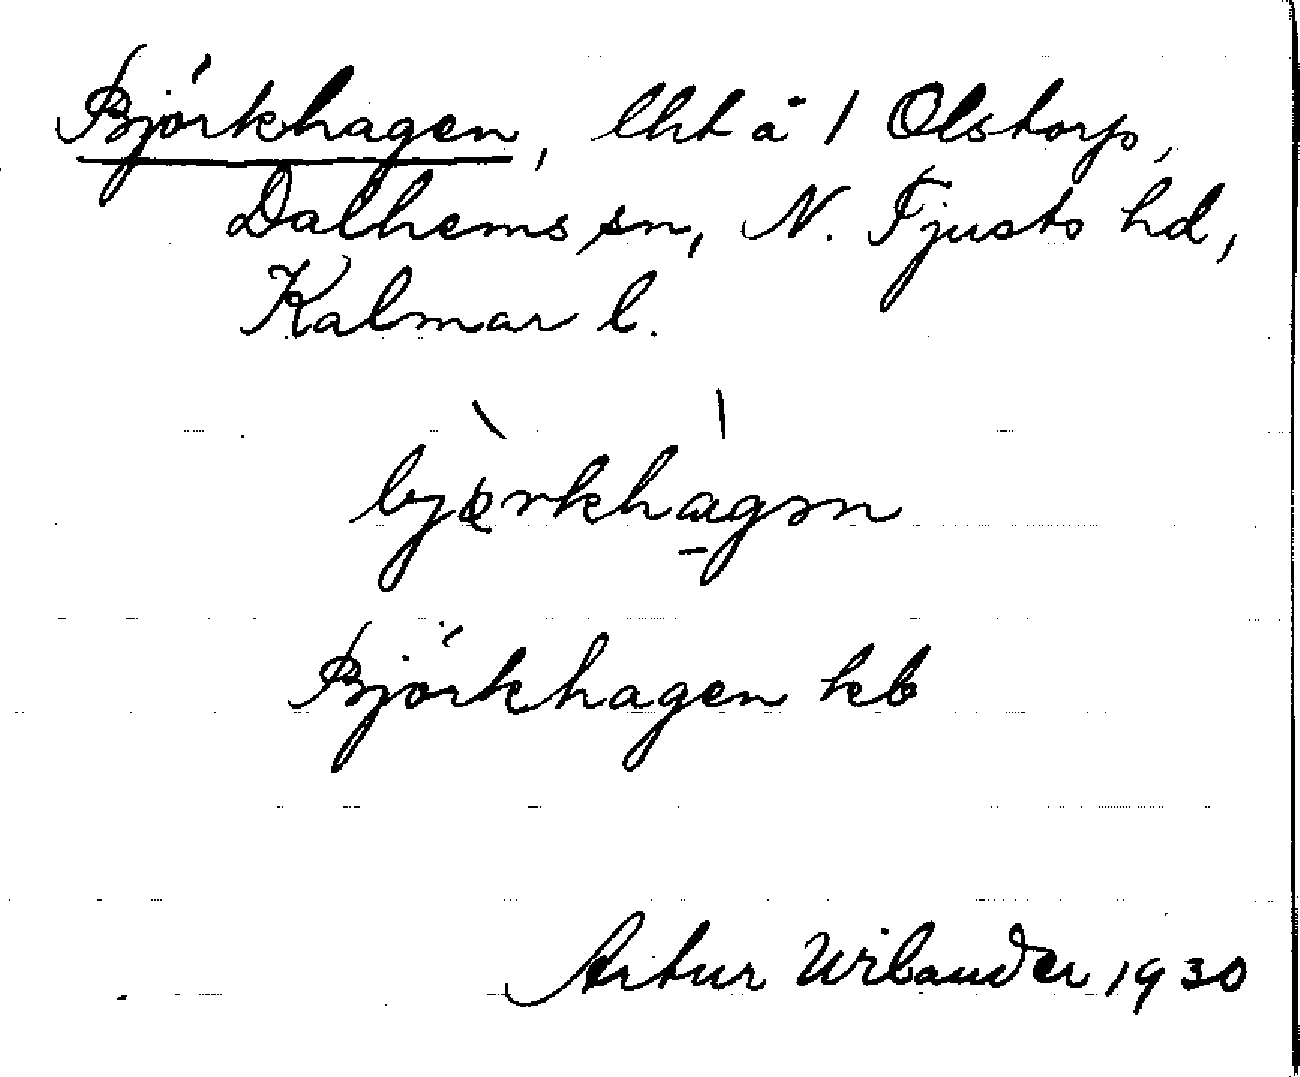 Björkhagen, lht å 1 Olstorp,
Dalhems sn, N. Tjusts hd,
Kalmar l.
björkhagən
Björkhagen kb
Artur Wilander 1930